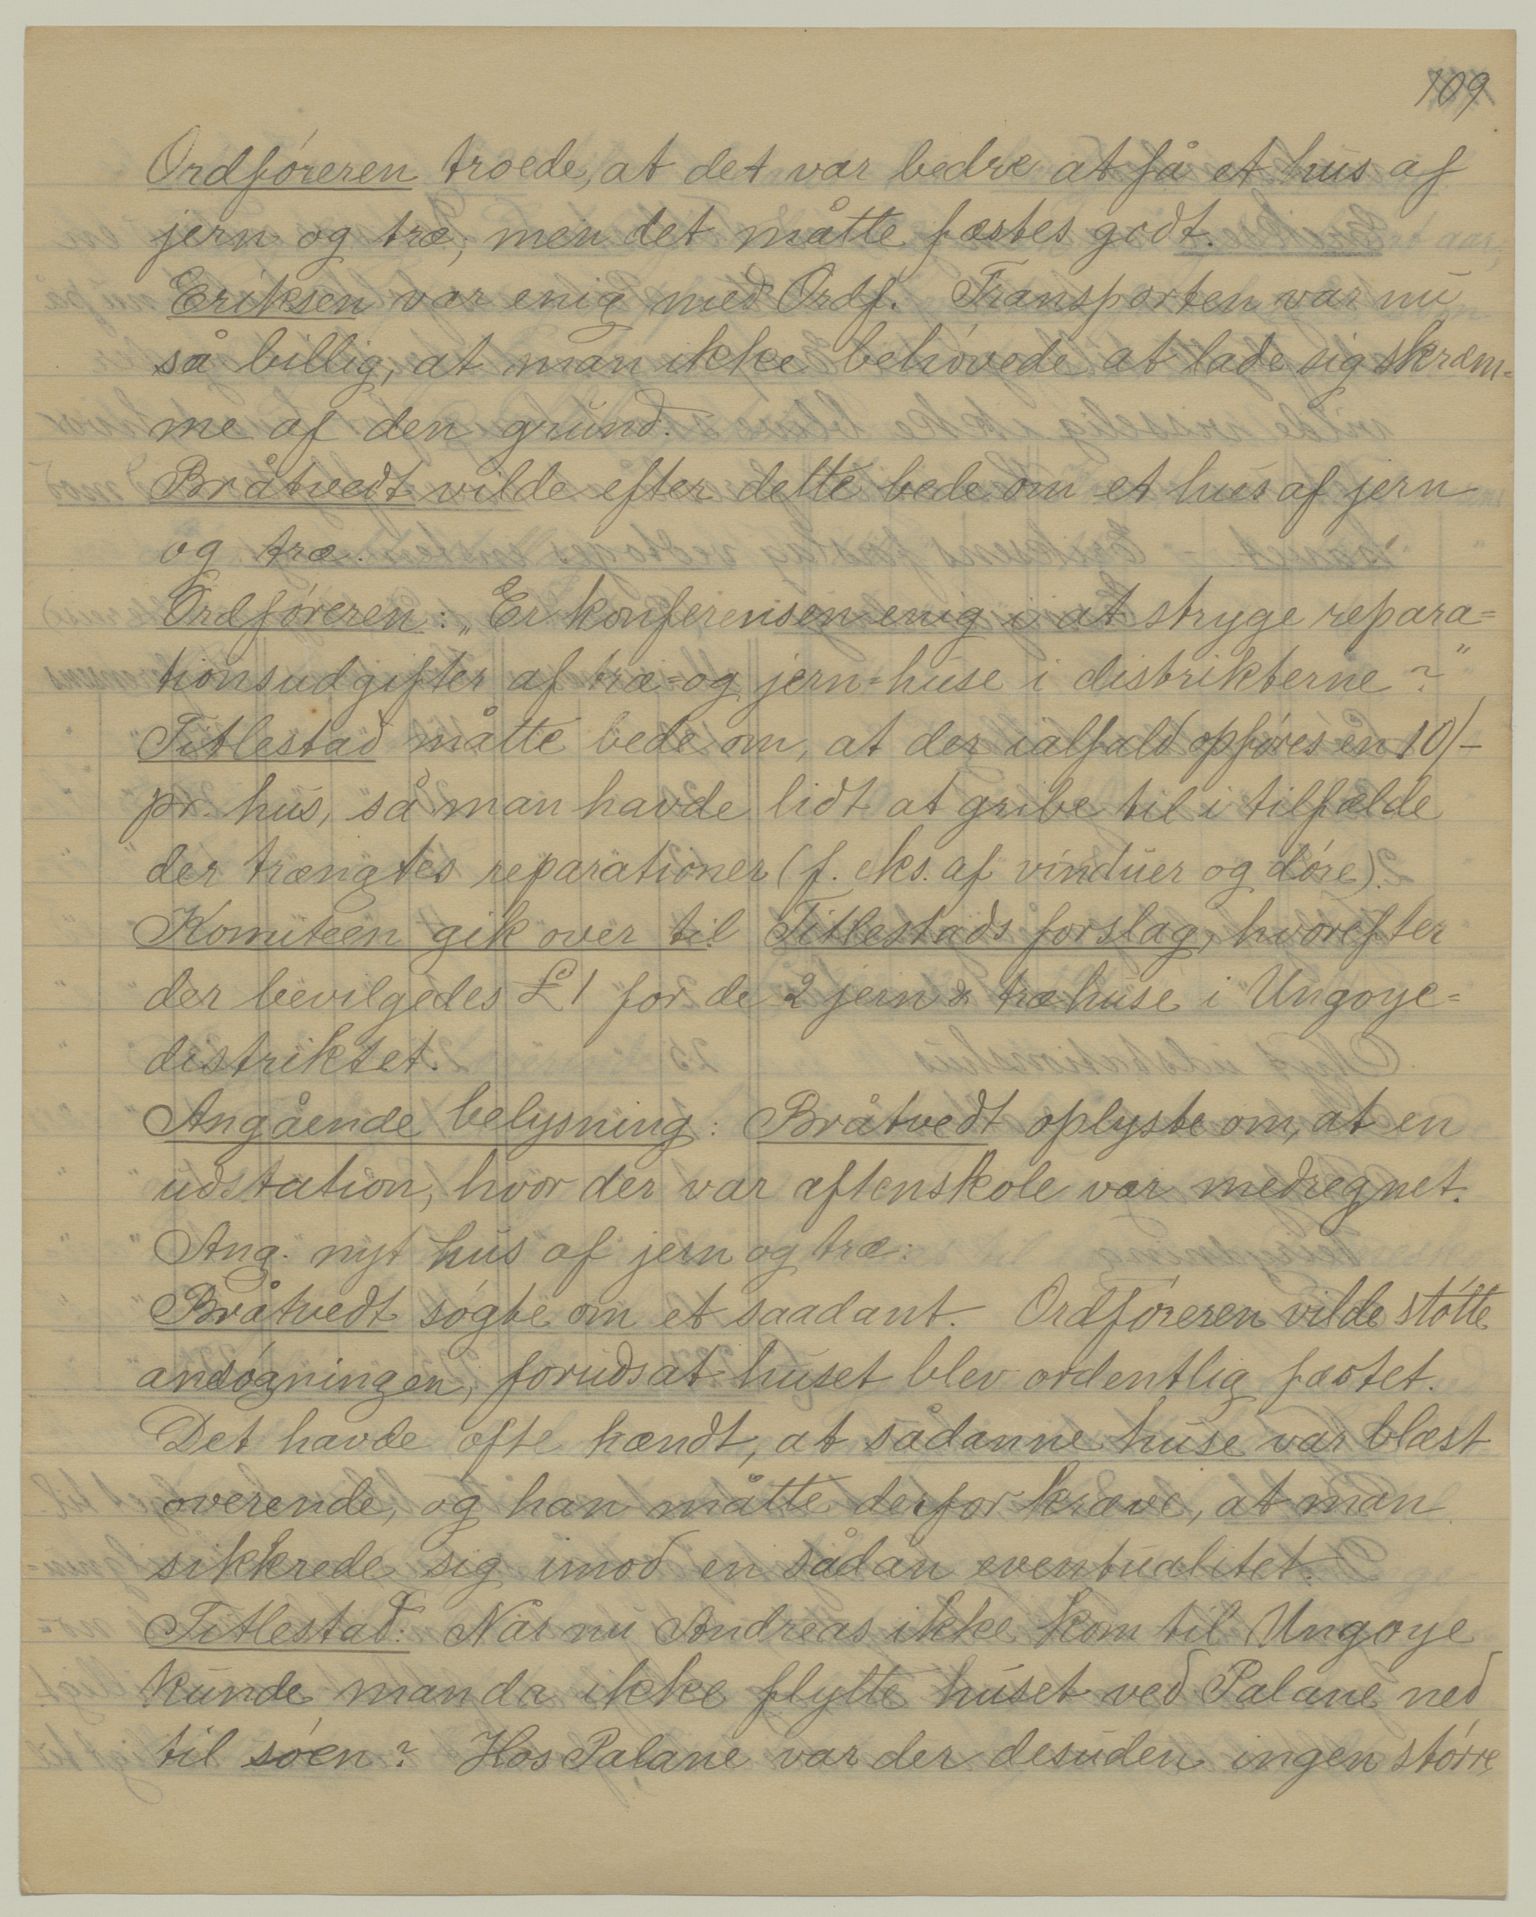 109
Ordføreren troede, at det var bedre at få et hus af
jern og træ; men det måtte fæstes godt.
Eriksen var enig med Ordf. Transporten var nu
så billig, at man ikke behøvede at lade sig skræm=
me af den grund.
Bråtvedt vilde efter dette bede om et hus af jern
og træ.
Ordføreren: „Er konferensen enig i at stryge repara=
tionsudgifter af træ= og jern=huse i distrikterne?"
Titlestad måtte bede om, at der ialfald opføres en 10/-
pr. hus, så man havde lidt at gribe til i tilfælde
der trængtes reparationer (f. eks. af vinduer og døre).
Komiteen gik over til Titlestads forslag, hvorefter
der bevilgedes £1 for de 2 jern & træhuse i Ungoye=
distriktet.
Angående belysning: Bråtvedt oplyste om, at en
udstation, hvor der var aftenskole var medregnet.
Ang. nyt hus af jern og træ:
Bråtvedt søgte om et saadant. Ordføreren vilde støtte
ansøgningen, forudsat huset blev ordentlig fæstet.
Det havde ofte hændt, at sådanne huse var blæst
overende, og han måtte derfor kræve, at man
sikkrede sig imod en sådan eventualitet.
Titlestad: Når nu Andreas ikke kom til Ungoye
kunde man da ikke flytte huset ved Palane ned
til søen? Hos Palane var der desuden ingen større